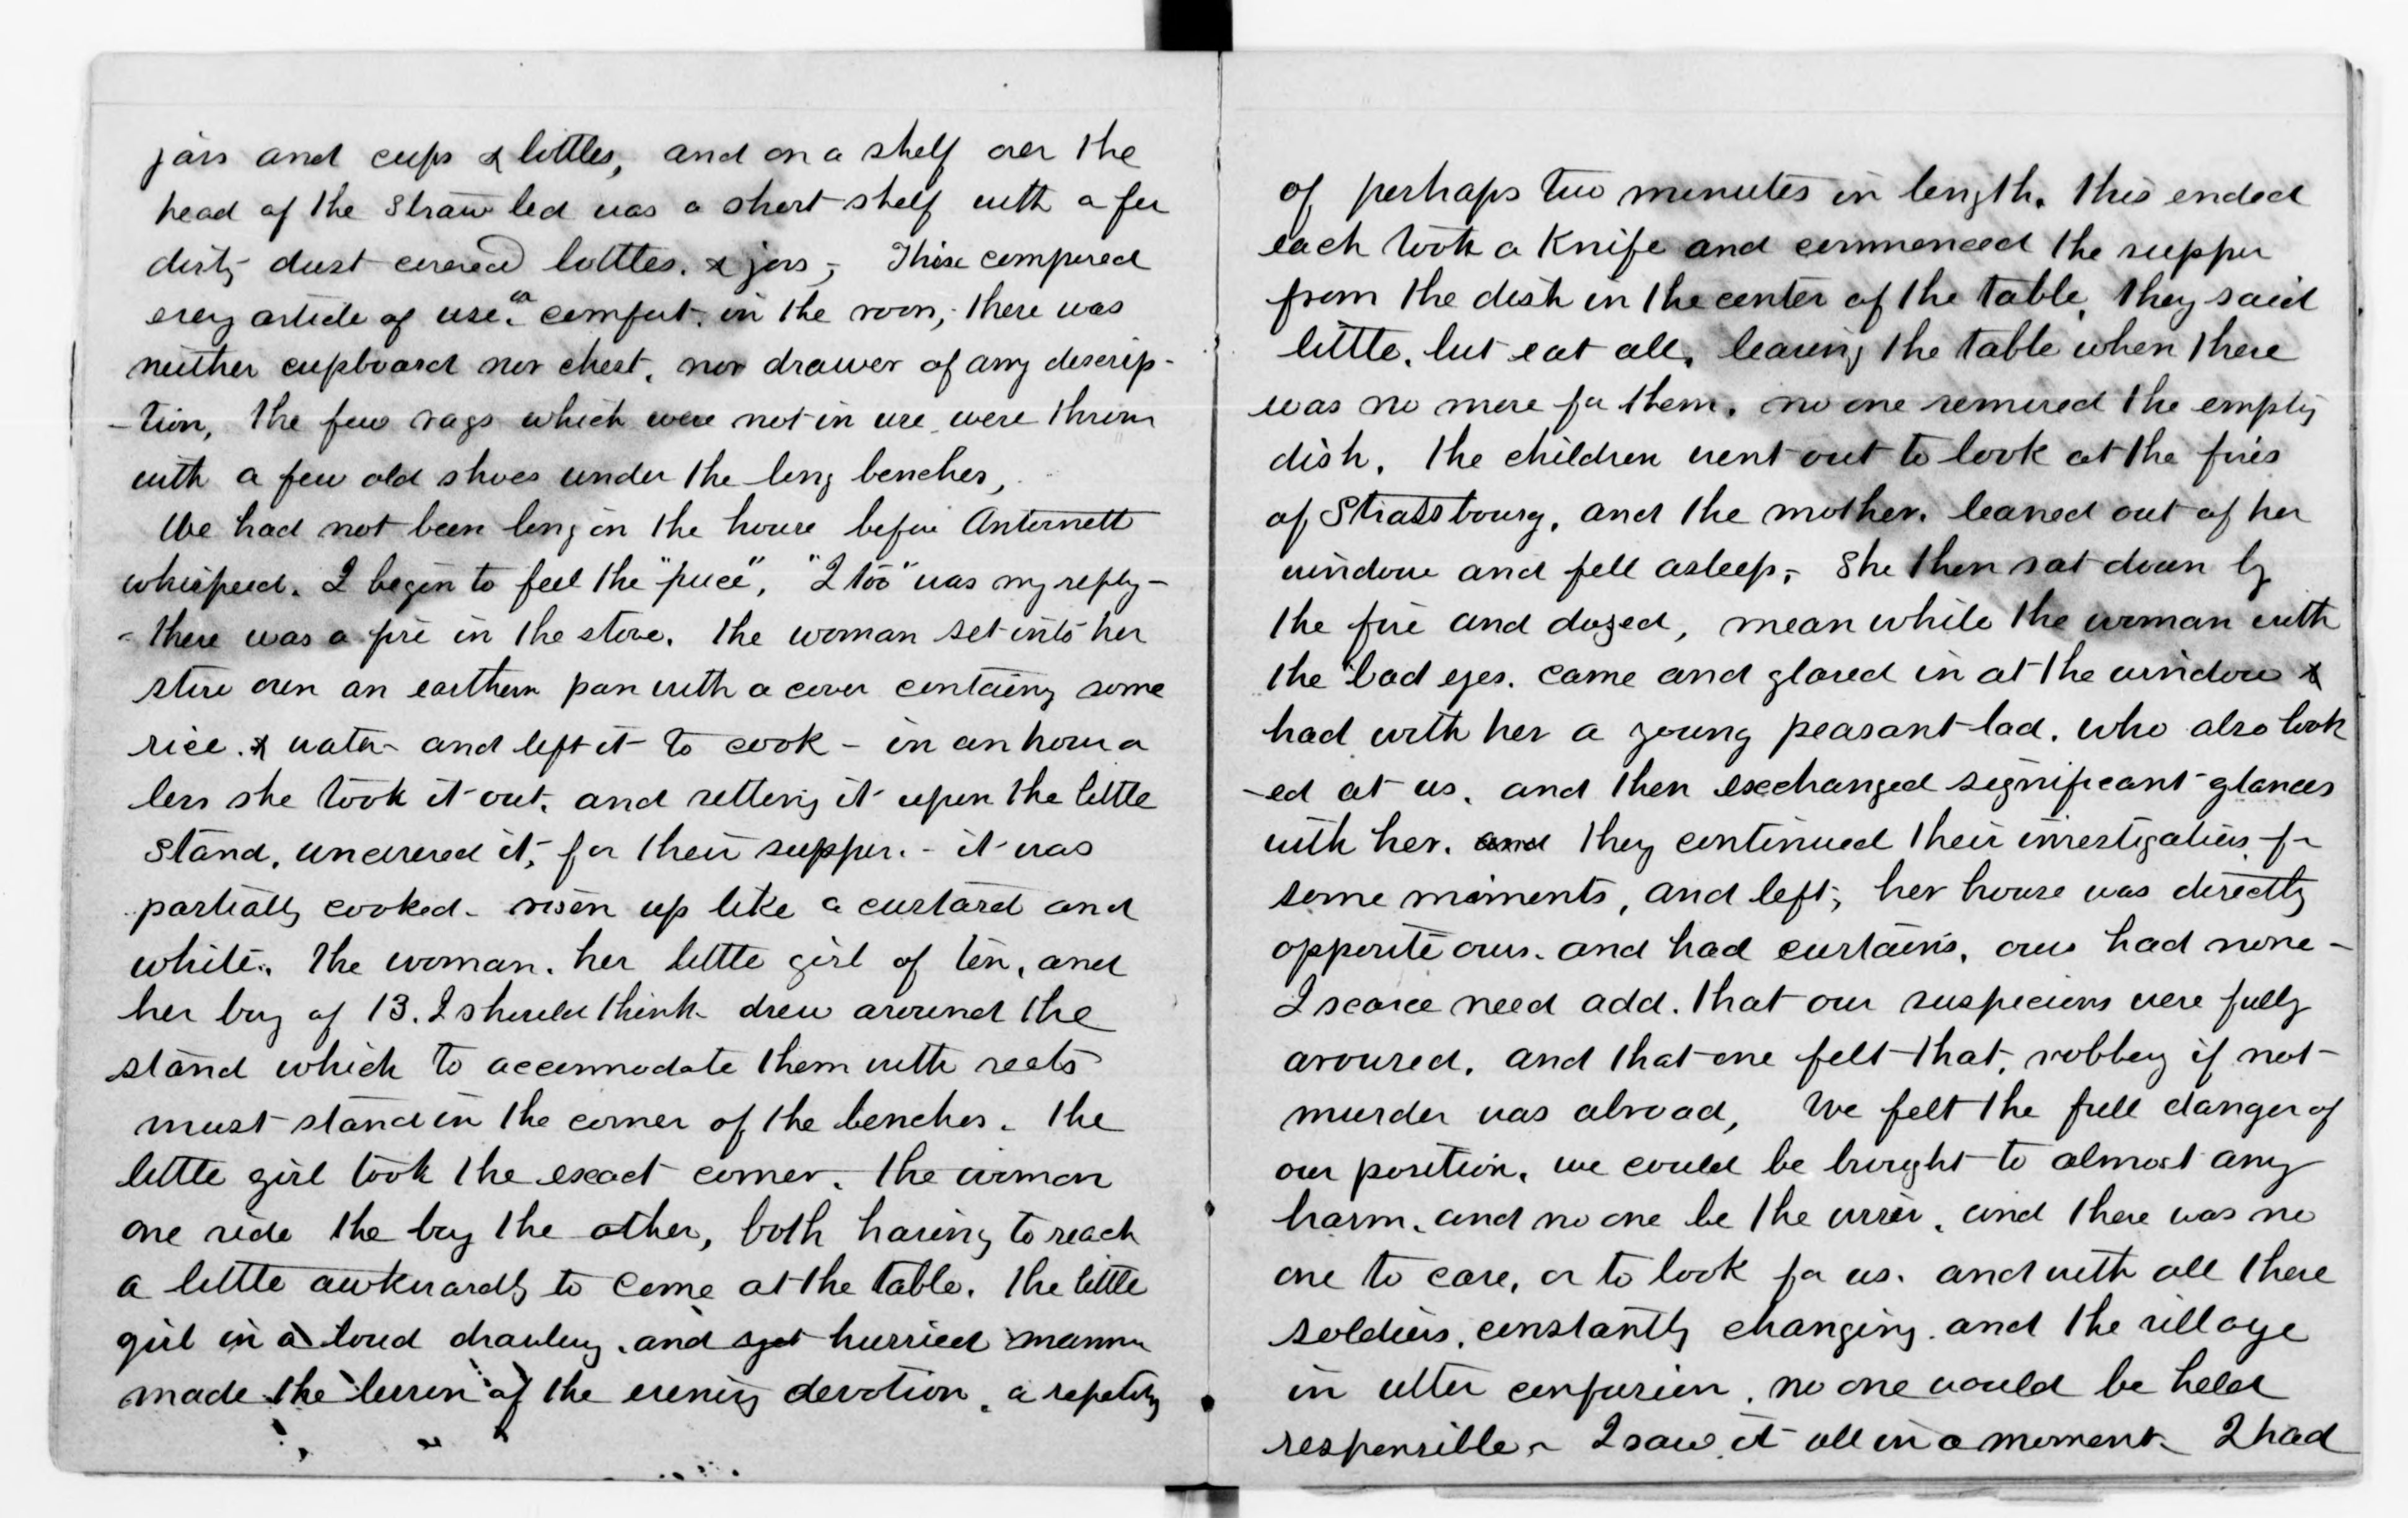 jars and cups & bottles, and on a shelf over the
head of the straw bed was a short shelf with a few
dirty dust covered bottles. & jars, - These compered
every article of use or comfort. in the room, - there was
neither cupboard nor chest, nor drawer of any descrip-
-tion, the few rags which were not in use, were thrown
with a few old shoes under the long benches,
We had not been long in the house before Anternett
whispered. I begin to feel the "puce", "I too" was my reply -
- there was a fire in the stove. the woman set into her
stove oven an earthern pan with a cover containg some
rice. & water - and left it to cook - in an hour or
less she took it out, and setting it upon the little
stand, uncovered it, for their supper. - it was
partially cooked - risen up like a custard and
white. The woman. her little girl of ten, and
her boy of 13. I should think - drew around the
stand which to accommodate them with seats
must stand in the corner of the benches. The
little girl took the exact corner. the woman
one side the boy the other, both having to reach
a little awkwardly to come at the table. The little
girl in a loud drawling. and yet hurried manner
made the lesson of the evening devotion. a repeting
of perhaps two minutes in length. this ended
each took a Knife and commenced the supper
from the dish in the center of the table, they said
little. but eat all. leaving the table when there
was no more for them. no one removed the empty
dish. The children went out to look at the fires
of Strassbourg, and the mother. leaned out of her
window and fell asleep, - She then sat down by
the fire and dozed, mean while the woman with
the bad eyes. came and glared in at the window &
had with her a young peasant lad. who also look
-ed at us. and then exchanged significant glances
with her. and they continued their investigations for
some moments, and left, her house was directly
opposite ours. and had curtains, ours had none -
I scarce need add. that our suspicions were fully
aroused. and that one felt that, robbery if not
murder was abroad, We felt the full danger of
our position. we could be brought to almost any
harm. and no one be the wiser, and there was no
one to care, or to look for us. and with all there
soldiers. constantly changing. and the village
in utter confusion. no one would be held
responsible - I saw it all in a moment - I had